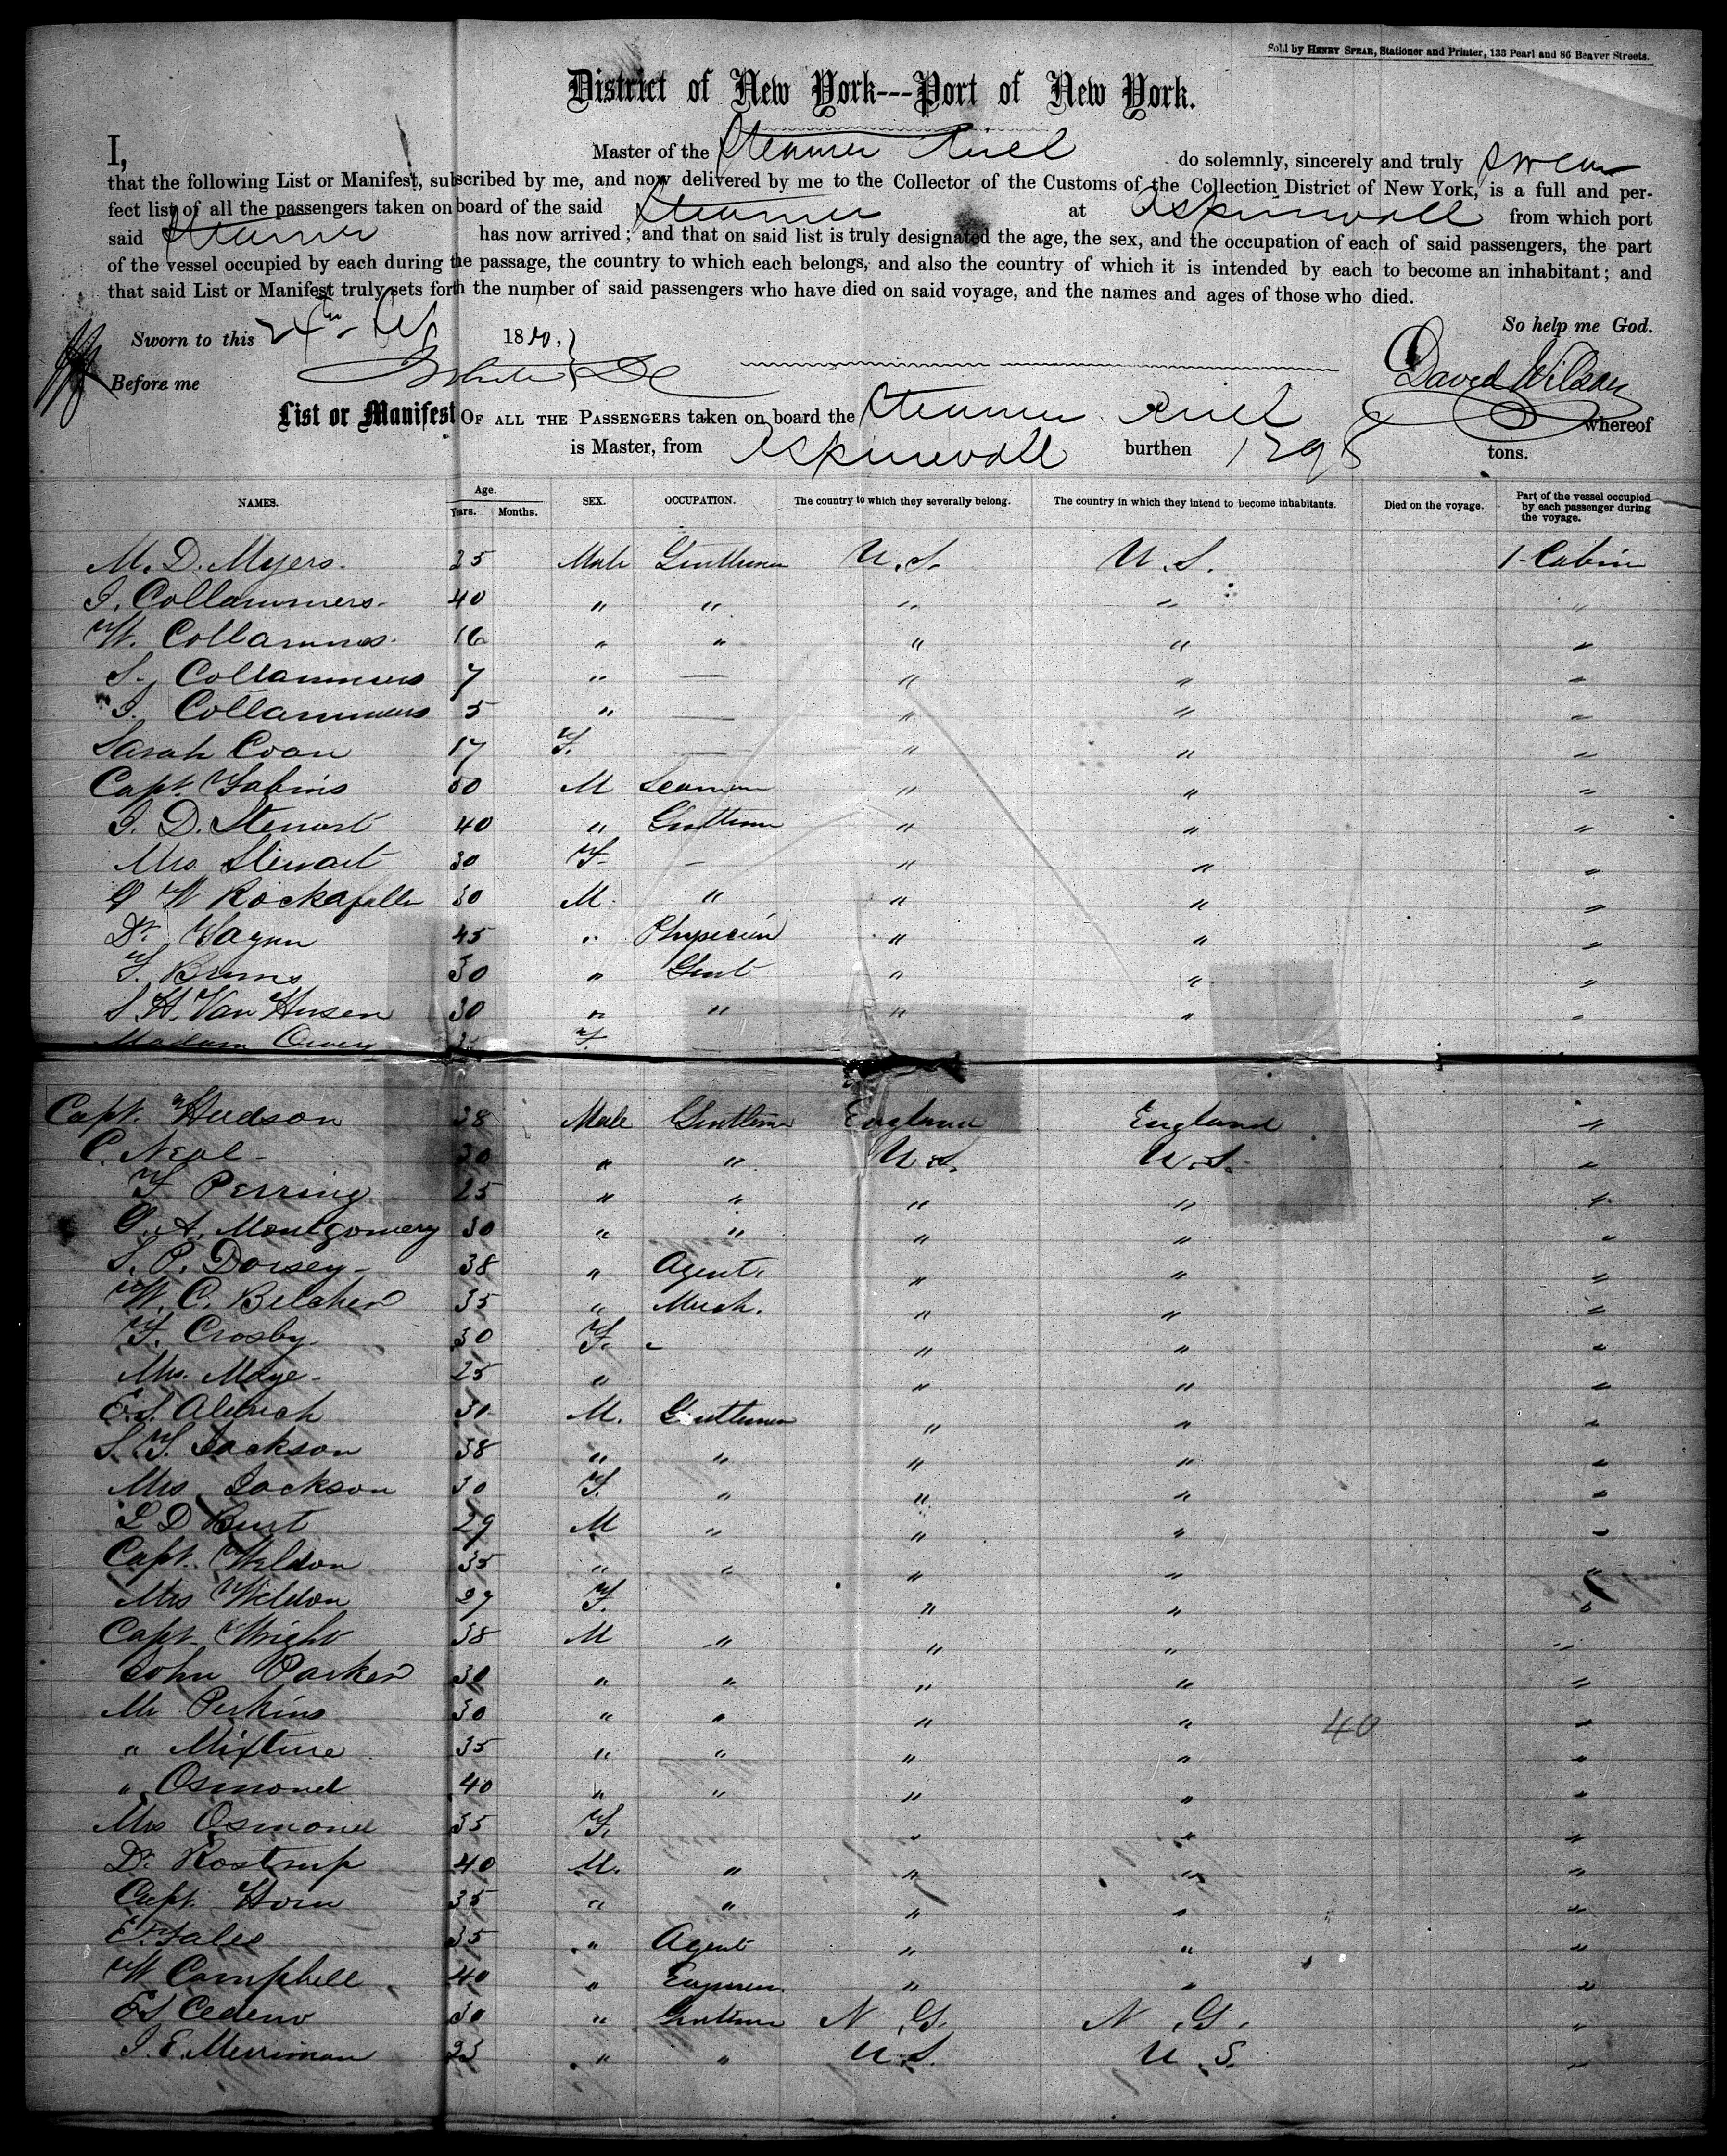 Sold by HENRY SPEAR, Stationer and Printer, 133 Pearl and 86 Beaver Streets.
District of New York---Port of New York.
I, Master of the Steamer Ariel do solemnly, sincerely and truly swear
that the following List or Manifest, subscribed by me, and now delivered by me to the Collector of the Customs of the Collection District of New York, is a full and per-
fect list of all the passengers taken on board of the said Steamer at Aspinwall from which port
said Steamer has now arrived; and that on said list is truly designated the age, the sex, and the occupation of each of said passengers, the part
of the vessel occupied by each during the passage, the country to which each belongs, and also the country of which it is intended by each to become an inhabitant; and
that said List or Manifest truly sets forth the number of said passengers who have died on said voyage, and the names and ages of those who died.
So help me God.
Sworn to this 24th 18
Before me
David Wilson
List or Manifest OF ALL THE PASSENGERS taken on board the Steamer Ariel whereof
is Master, from Aspinwall burthen 1298 tons.
NAMES. Age. Years. Months. SEX. OCCUPATION. The country to which they severally belong. The country in which they intend to become inhabitants. Died on the voyage. Part of the vessel occupied by each passenger during the voyage.
M. D. Myers. 25 Male Gentleman U.S. U.S. 1-Cabin
I. Collammers. 40 " " " " "
W. Collammers. 16 " " " " "
S. Collammers 7 " — " " "
I. Collammers 5 " — " " "
Sarah Coan 17 F. — " " "
Capt. Fabins 50 M Seaman " " "
I. D. Stewart 40 " Gentleman " " "
Mrs. Stewart 30 F - " " "
G W Rockafeller 30 M. " " " "
Dr. 45 " Physician " " "
F. Bruns 30 " Gent " " "
S. H. Van Husen 30 " " " " "
Madam F.
Capt. Hudson 38 Male Gentleman England England "
C. Neal - 30 " " U.S. U.S. "
F Perring 25 " " " " "
G. A. Montgomery 30 " " " " "
S. P. Dorsey - 38 " Agent. " " "
W. C. Belcher 35 " Mech. " " "
F. Crosby 30 F. - " " "
Mrs. Maye - 25 " " " "
E. S. Aldrich 30 M. Gentleman " " "
S. F. Jackson 38 " " " " "
Mrs Jackson 30 F. " " " "
L D Burt 29 M " " " "
Capt. Weldon 35 " " " " "
Mrs Weldon 27 F. " " "
Capt. Wright 38 M " " " "
John Parker 30 " " " " "
Mr Perkins 30 " " " " 40 "
" Mixture 35 " " " " "
" Osmond 40 " " " " "
Mrs Osmond 35 F. " " "
Dr. Rostrup 40 M. " " " "
Capt. Horn 35 " " " " "
E. Fales 35 " Agent " " "
W Campbell 40 " " " "
Es Cedeno 30 " Gentleman N.G. N.G. "
J. E. Merriman 23 " " U.S. U.S. "